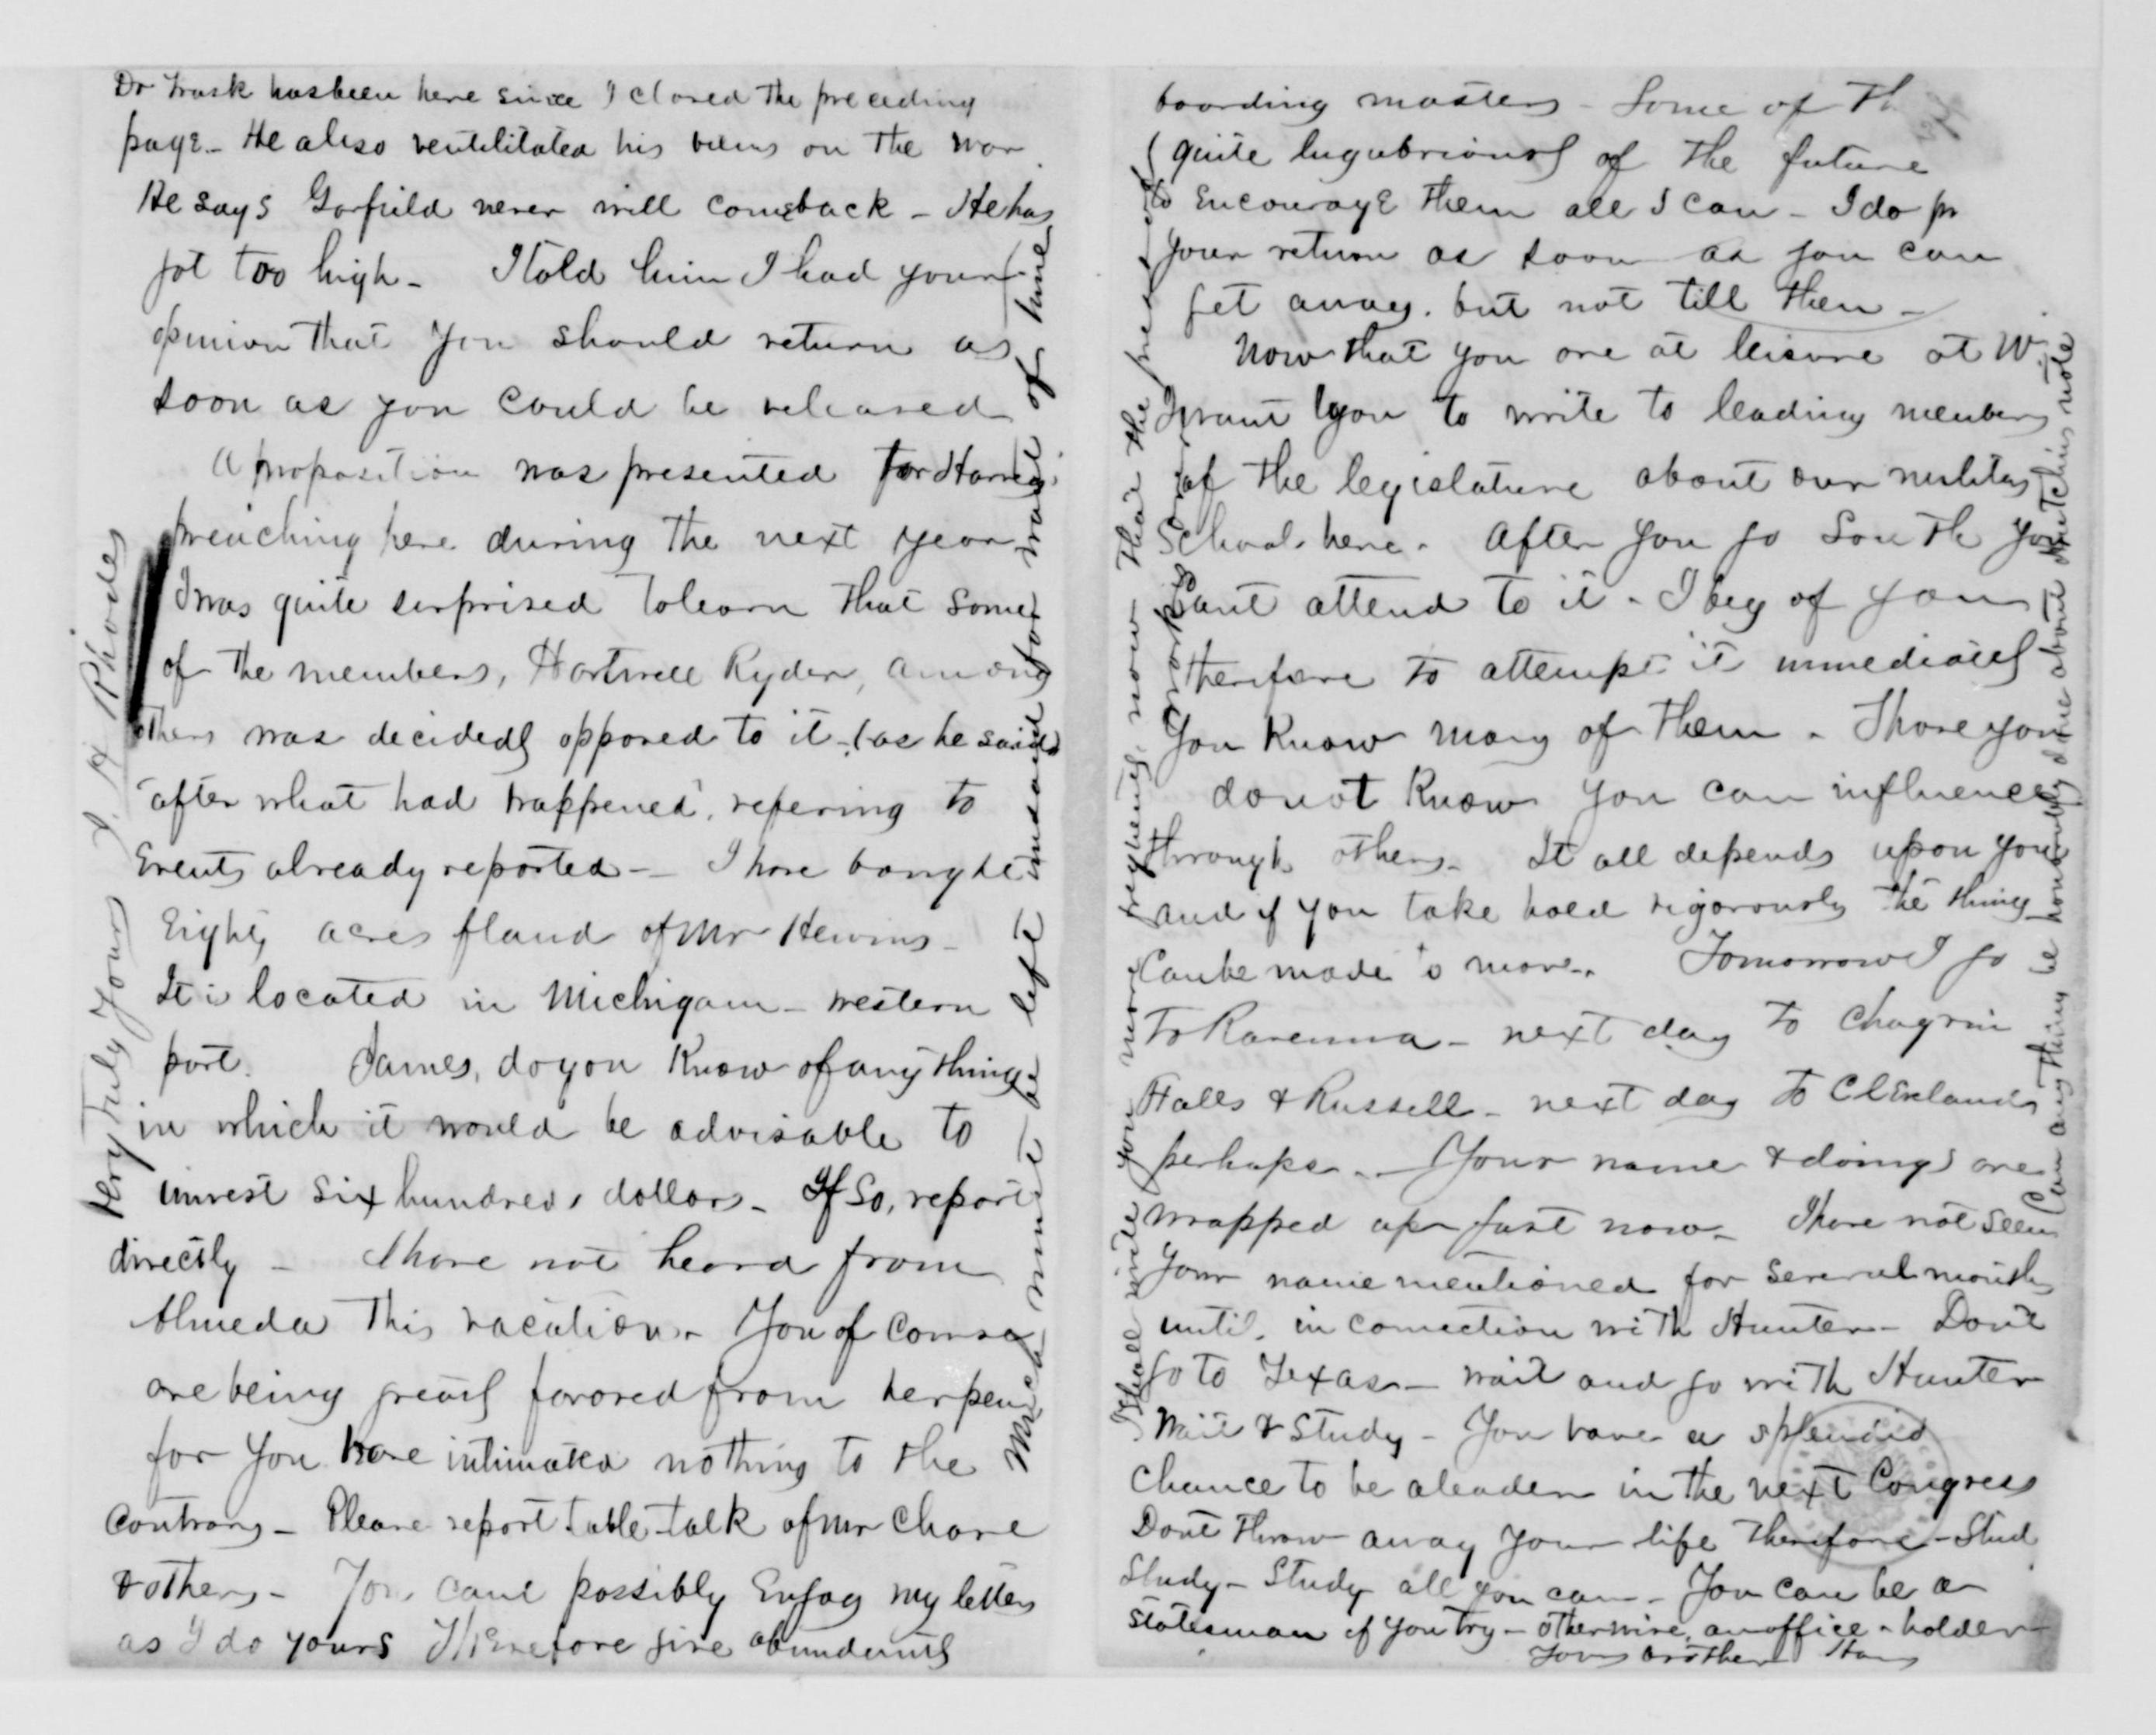 Dr Trask has been here since I closed the preceding
page - He also ventilitated his views on the war
He says Garfield never will come back - He has
got too high - I told him I had your
opinion that you should return as
soon as you could be released
A proposition was presented for Harry's
preaching here during the next year
I was quite surprised to learn that some
of the members, Hartwell Ryder, among
others was decidedly opposed to it - (as he said)
"after what had happened", refering to
Events already reported - I have bought
Eighty acres of land of Mr Hewins -
It is located in Michigan - western
part. James, do you know of any thing
in which it would be advisable to
invest six hundred dollars - If so, report
directly - I have not heard from
Almeda this vacation - You of course
are being greatly favored from her pen
for you have intimated nothing to the
contrary - Please report table-talk of Mr Chase
& others - You cant possibly Enjoy my letters
as I do yours Therefore give abundantly
Much must be left unsaid for want of time
Very Truly Yours J. H. Rhodes
boarding masters - Some of th
quite lugubriously of the future
to Encourage them all I can - I do
your return as soon as you can
get away. but not till then -
Now that you are at leisure at W.
I want you to write to leading members
of the legislature about our military
School here. After you go South you
Cant attend to it - I beg of you
therefore to attempt it immediately
You Know many of them - Those you
do not Know you can influence
through others - It all depends upon you
and if you take hold vigorously the thing
Can be made to move. Tomorrow I go
To Ravenna - next day to Chagrin
Falls & Russell - next day to Cleveland
perhaps - Your name & doings are
wrapped up fast now - I have not seen
Your name mentioned for several months
until, in connection with Hunter - Don't
go to Texas - wait and go with Hunter
Wait & Study - You have a splendid
chance to be a leader in the next Congress
Dont throw away your life therefore - Stud
Study - Study all you can - You can be a
statesman if you try - otherwise, an office-holder -
Your brother Har
I shall write you more frequently now that the
Can any thing be honorably done about Hutchins note